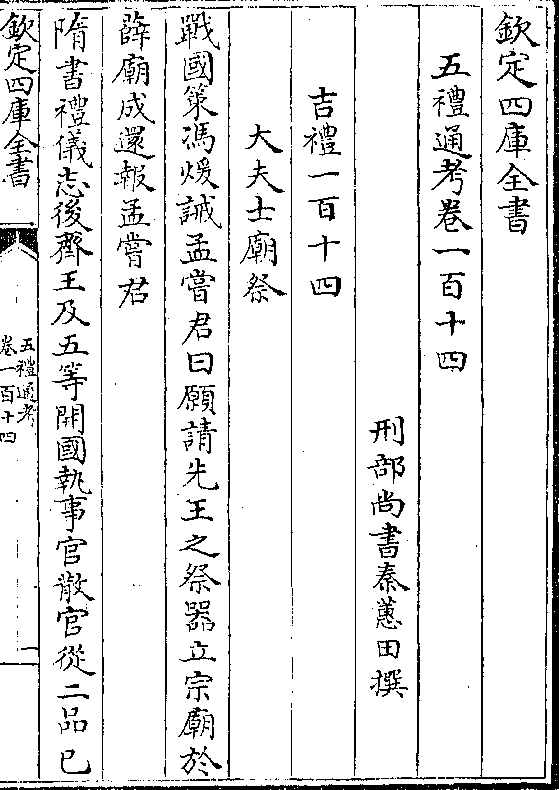 欽定四庫全書
五禮通考卷一百十四
刑部尚書秦蕙田撰
吉禮一百十四
大夫士廟祭
戰國策馮煖誡孟嘗君曰願請先王之祭器立宗廟於
薛廟成還報孟嘗君
隋書禮儀志後齊王及五等開國執事官散官從二品已
欽定四庫全書
五禮通考
卷一百十四
一